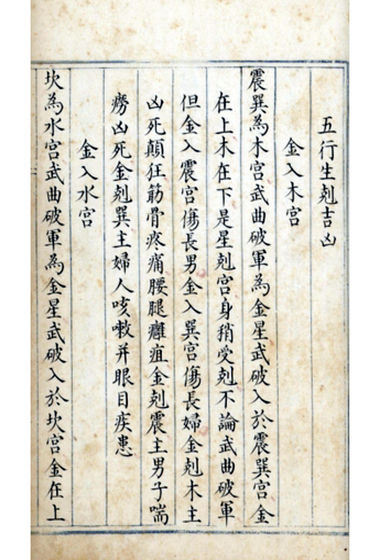 五行生剋吉凶
金入木宮
震巽為木宮武曲破軍為金星武破入於震巽宮金
在上木在下是星剋宮身稍受剋不論武曲破軍
但金入震宮傷長男金入巽宮傷長婦金剋木主
凶死顛狂筋骨疼痛腰腿癰疽金剋震主男子喘
癆凶死金剋巽主婦人咳嗽并眼目疾患
金入水宮
坎為水宮武曲破軍為金星武破入於坎宮金在上